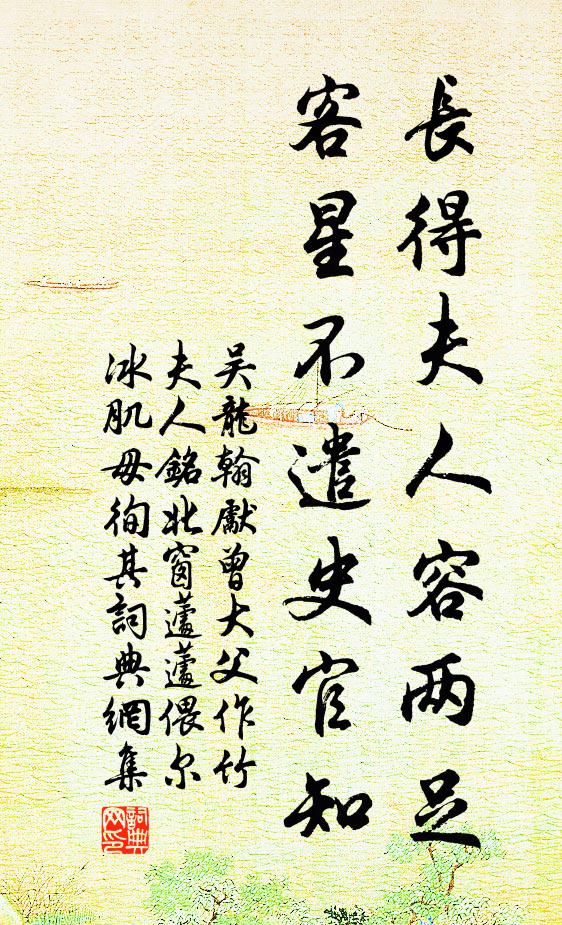 長得夫人容兩足
客星不遣史官知
吴龍翰獻曾大父作竹
夫人銘北窗蘧蘧偎尔
冰肌毋徇其詞典網集
詞典网印